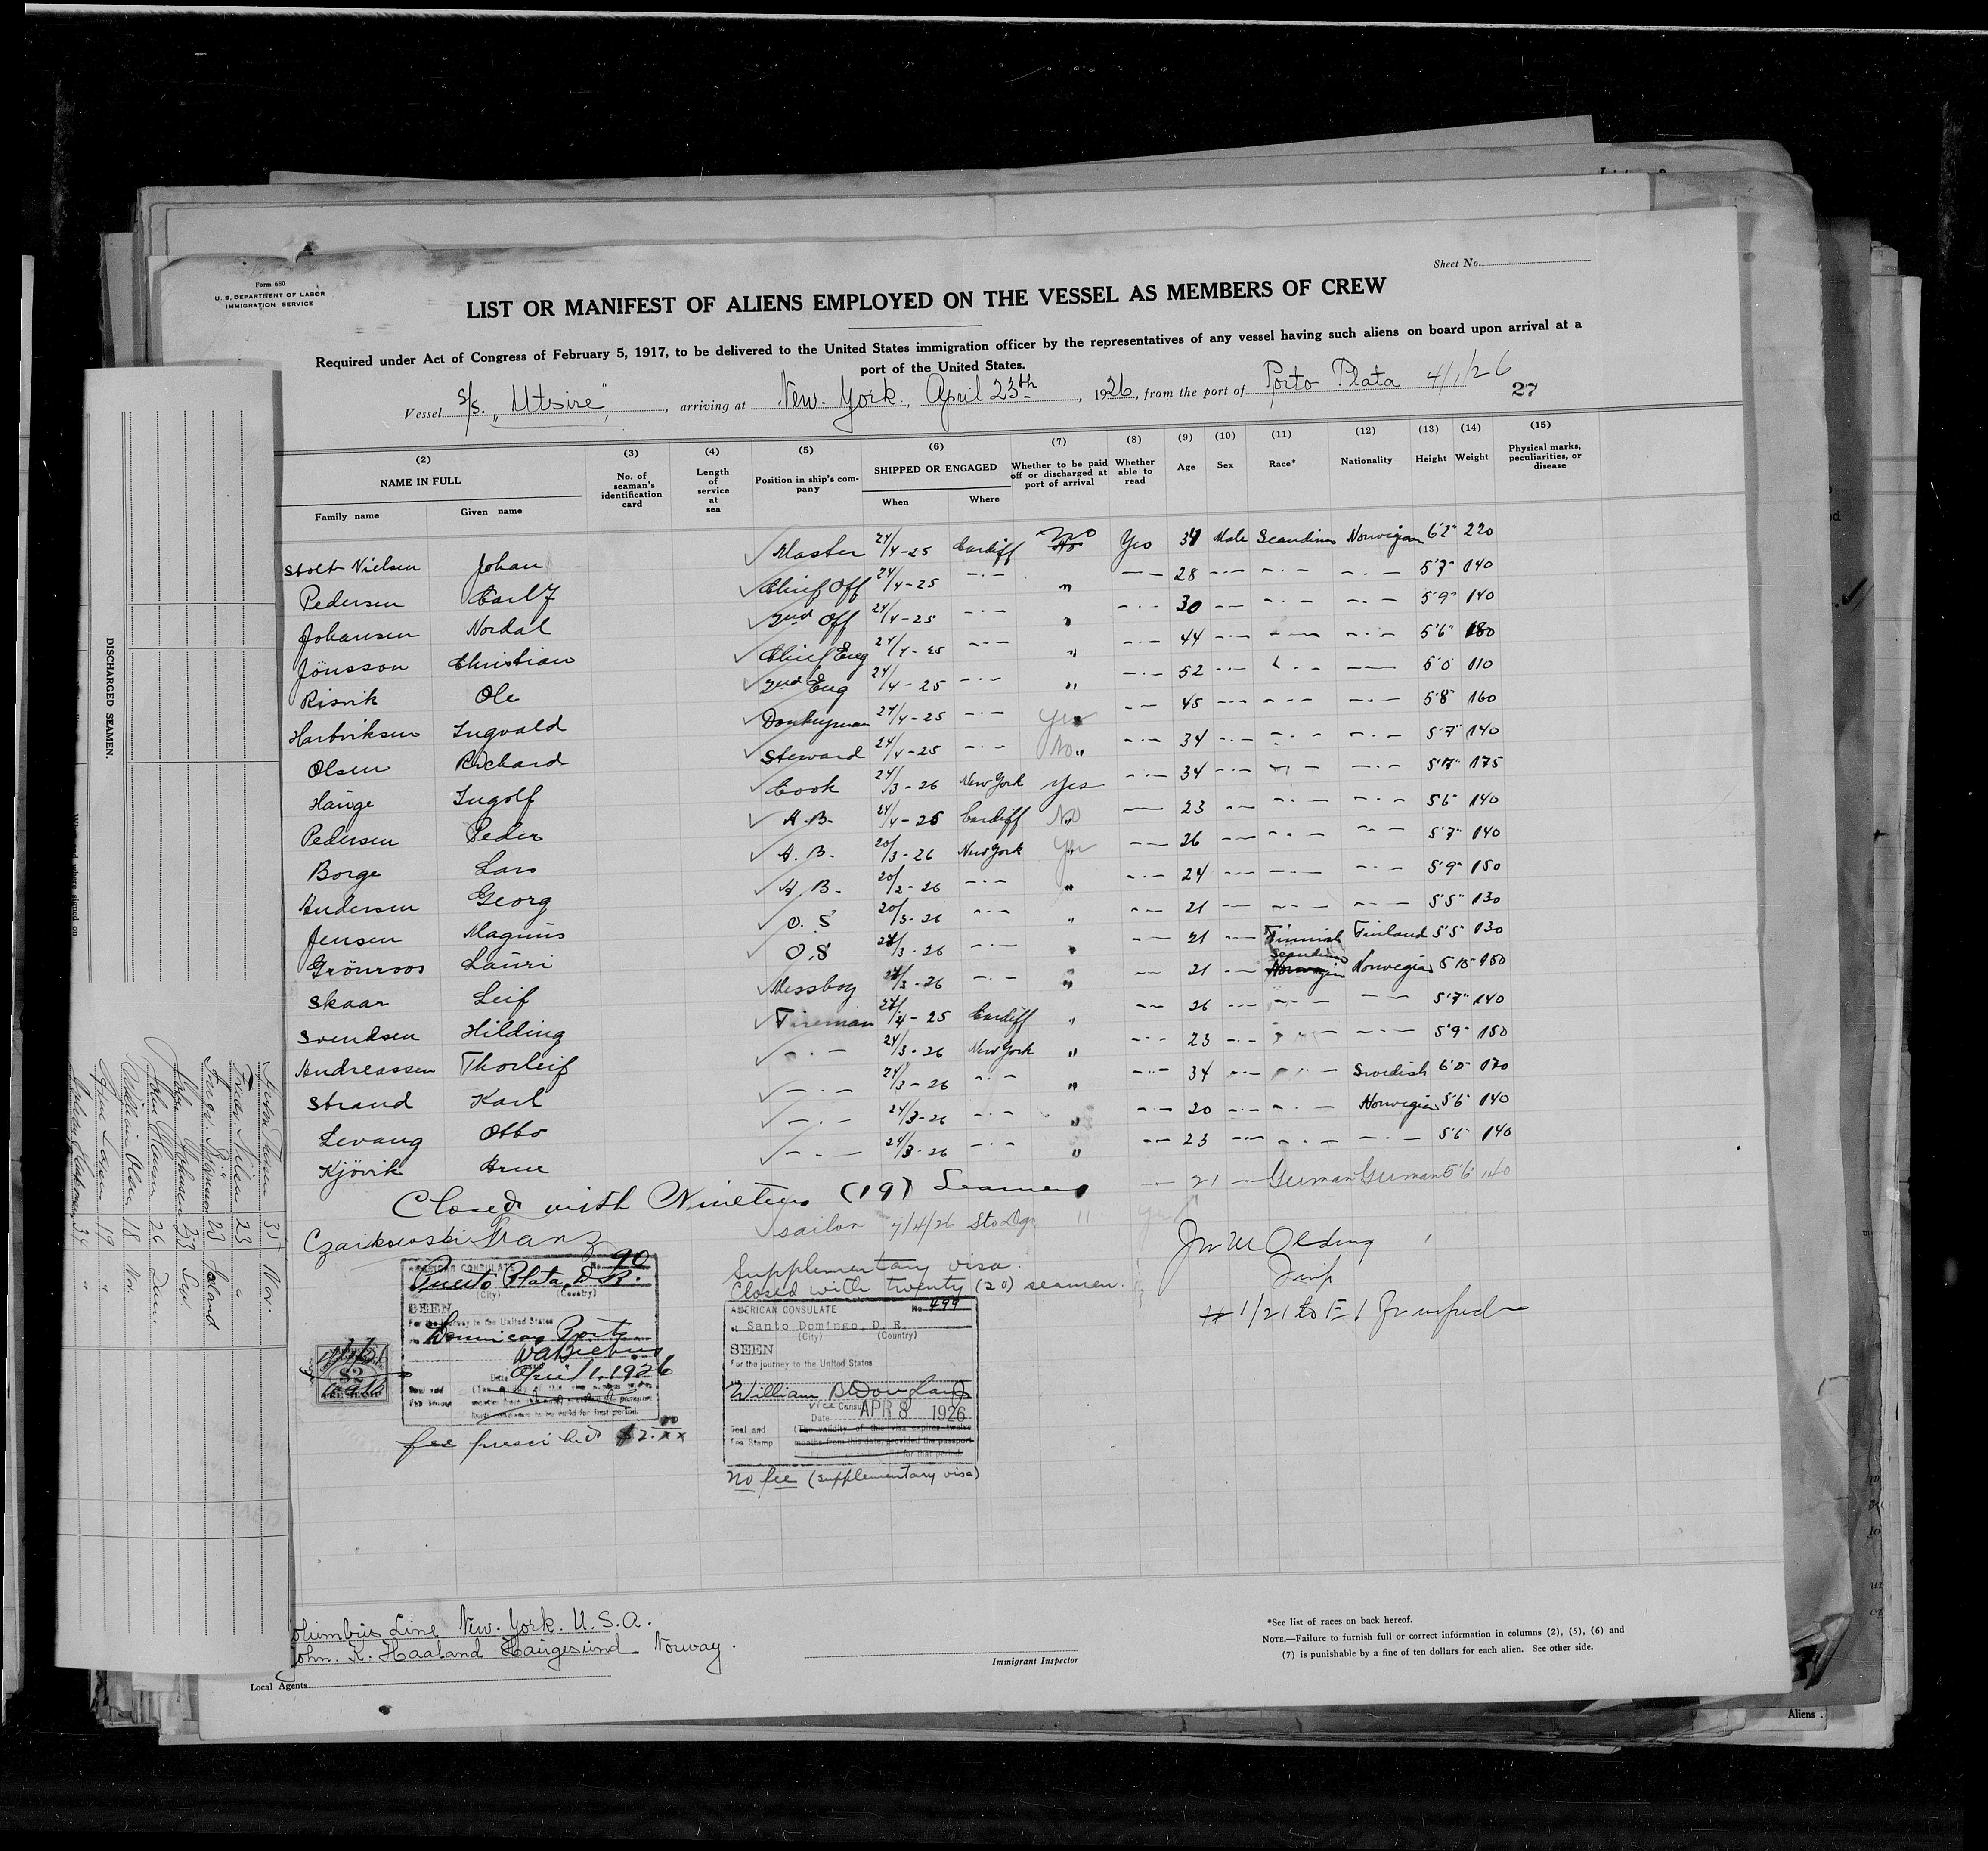 Form 680
U. S. DEPARTMENT OF LABOR
IMMIGRATION SERVICE
Sheet No.
LIST OR MANIFEST OF ALIENS EMPLOYED ON THE VESSEL AS MEMBERS OF CREW
Required under Act of Congress of February 5, 1917, to be delivered to the United States immigration officer by the representatives of any vessel having such aliens on board upon arrival at a
port of the United States.
Vessel S/S. "Utsire", arriving at New. York., April 23th, 1926, from the port of Porto Plata 4/1/26
27
(2) (3) (4) (5) (6) (7) (8) (9) (10) (11) (12) (13) (14) (15)
NAME IN FULL No. of seaman's identification card Length of service at sea Position in ship's company SHIPPED OR ENGAGED Whether to be paid off or discharged at port of arrival Whether able to read Age Sex Race* Nationality Height Weight Physical marks, peculiarities, or disease
Family name Given name When Where
Stolt Nielsen Johan Master 24/4-25 Cardiff No Yes 34 Male Scandinav Norwegian 6'2" 220
Pedersen Carl J Chief Off 24/4-25 -.- " -- 28 -.- -.- -.- 5'7" 140
Johansen Nordal 2nd Off 24/4-25 -.- " -.- 30 -- -.- -.- 5'9" 140
Jönsson Christian Chief Eng 24/4-25 -.- " -.- 44 -.- -.- -.- 5'6" 180
Risvik Ole 2nd Eng 24/4-25 -.- " -.- 52 -.- -.- -- 5'0 110
Ingvald Donkeyman 24/4-25 -.- Yes -- 45 -.- -.- -.- 5'8" 160
Olsen Richard Steward 24/4-25 -.- No " -.- 34 -.- -.- -.- 5'7" 140
Hauge Ingolf Cook 24/3-26 New York Yes -.- 34 -.- -.- -.- 175
Pedersen Peder A.B. 24/4-25 Cardiff No -- 23 -- -.- -.- 5'6" 140
Borge Lars A.B. 20/3-26 New York Yes -- 26 -- -.- -.- 5'7" 140
Andersen Georg A.B. 20/2-26 -.- " -.- 24 -- -.- -.- 5'9" 150
Jensen Magnus O.S 20/3-26 -.- " -.- 21 -- -.- -.- 5'5" 130
Grönroos Lauri O.S 24/3-26 -.- " -.- 21 -- Finnish Finland 5'5" 130
Skaar Leif Messboy 24/3-26 -.- " -- 21 -- Scandinav Norwegian 150
Svendsen Hilding Fireman 24/4-25 Cardiff " -- 26 -.- -.- -- 5'7" 140
Andreassen Thorleif -.- 24/3-26 New York " -.- 23 -.- -.- -.- 5'9" 150
Strand Karl -.- 24/3-26 -.- " -.- 34 -.- -.- Swedish 6'0" 170
Levang Otto -.- 24/3-26 -.- " -.- 20 -.- -.- Norwegian 5'6" 140
Kjövik Arne -.- 24/3-26 -.- " -- 23 -.- -.- -.- 5'6" 140
Closed with Nineteen (19) Seamen
Czaikowski Franz sailor 7/4/26 Sto Dgo " Yes 21 -- German German 5'6" 140
AMERICAN CONSULATE No. 90
Puerto Plata, D. R.
(City) (Country)
SEEN
For the journey to the United States
Dominican Ports
Date April 1, 1926
$2
fee prescribed $2.00
Supplementary visa.
Closed with twenty (20) seamen.
AMERICAN CONSULATE No. 499
at Santo Domingo, D. R.
(City) (Country)
SEEN
For the journey to the United States
William B Douglass
Vice Consul
Date APR 8 1926
Seal and Fee Stamp (The validity of this visa expires twelve months from this date, provided the passport for that period.
No fee (supplementary visa)
Columbus Line New. York. U. S. A.
John. K. Haaland Haugesund Norway.
Local Agents
Immigrant Inspector
*See list of races on back hereof.
NOTE.—Failure to furnish full or correct information in columns (2), (5), (6) and
(7) is punishable by a fine of ten dollars for each alien. See other side.
DISCHARGED SEAMEN.
35 Nor.
23 "
23 Island
John Johansen 23
John Hansen 26
William Olsen 18 Nor.
19 "
34 "
Aliens